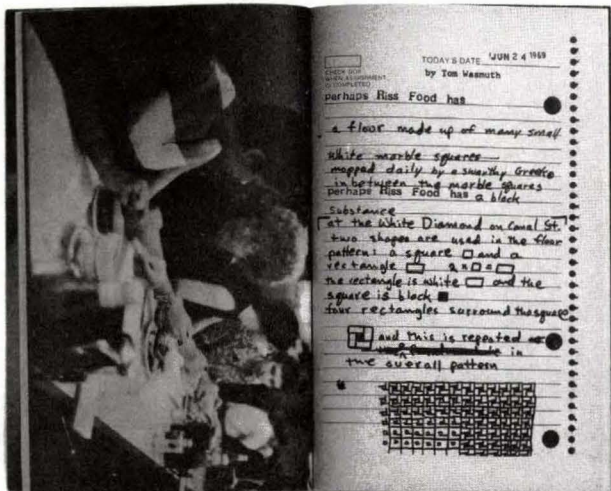 TODAY'S DATE JUN 24 1969
CHECK BOX
WHEN ASSIGNMENT
IS COMPLETED
by Tom Wasmuth
perhaps Riss Food has
a floor made up of many small
white marble squares
mopped daily by a swarthy Greek
in between the marble squares
perhaps Riss Food has a black
substance
at the White Diamond on Canal St.
two shapes are used in the floor
pattern: a square □ and a
rectangle ▭ 2 x □ = ▭
the rectangle is white ▭ and the
square is black ■
four rectangles surround the square
and this is repeated
in
the overall pattern